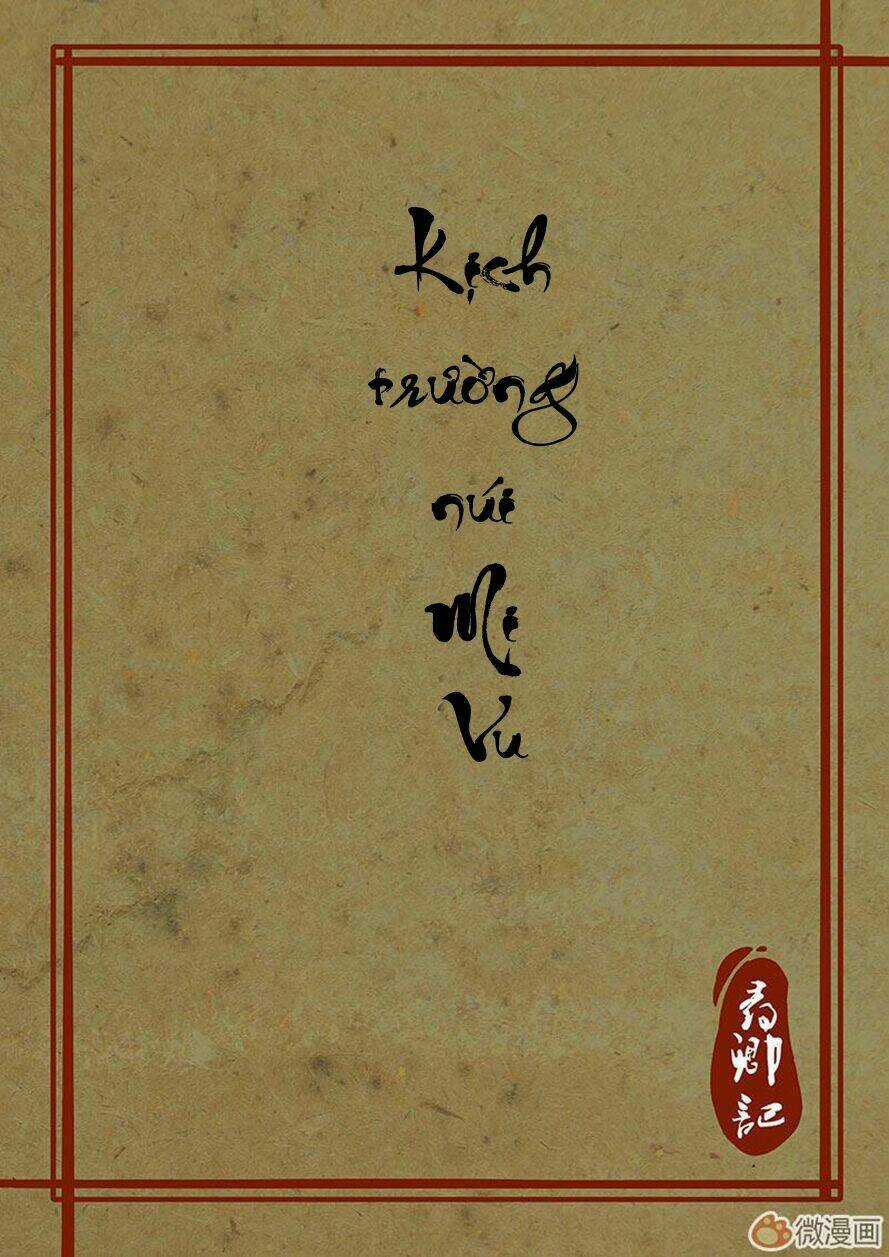 Kịch
trường
núi
Mị
Vu
尋卿記
微漫画